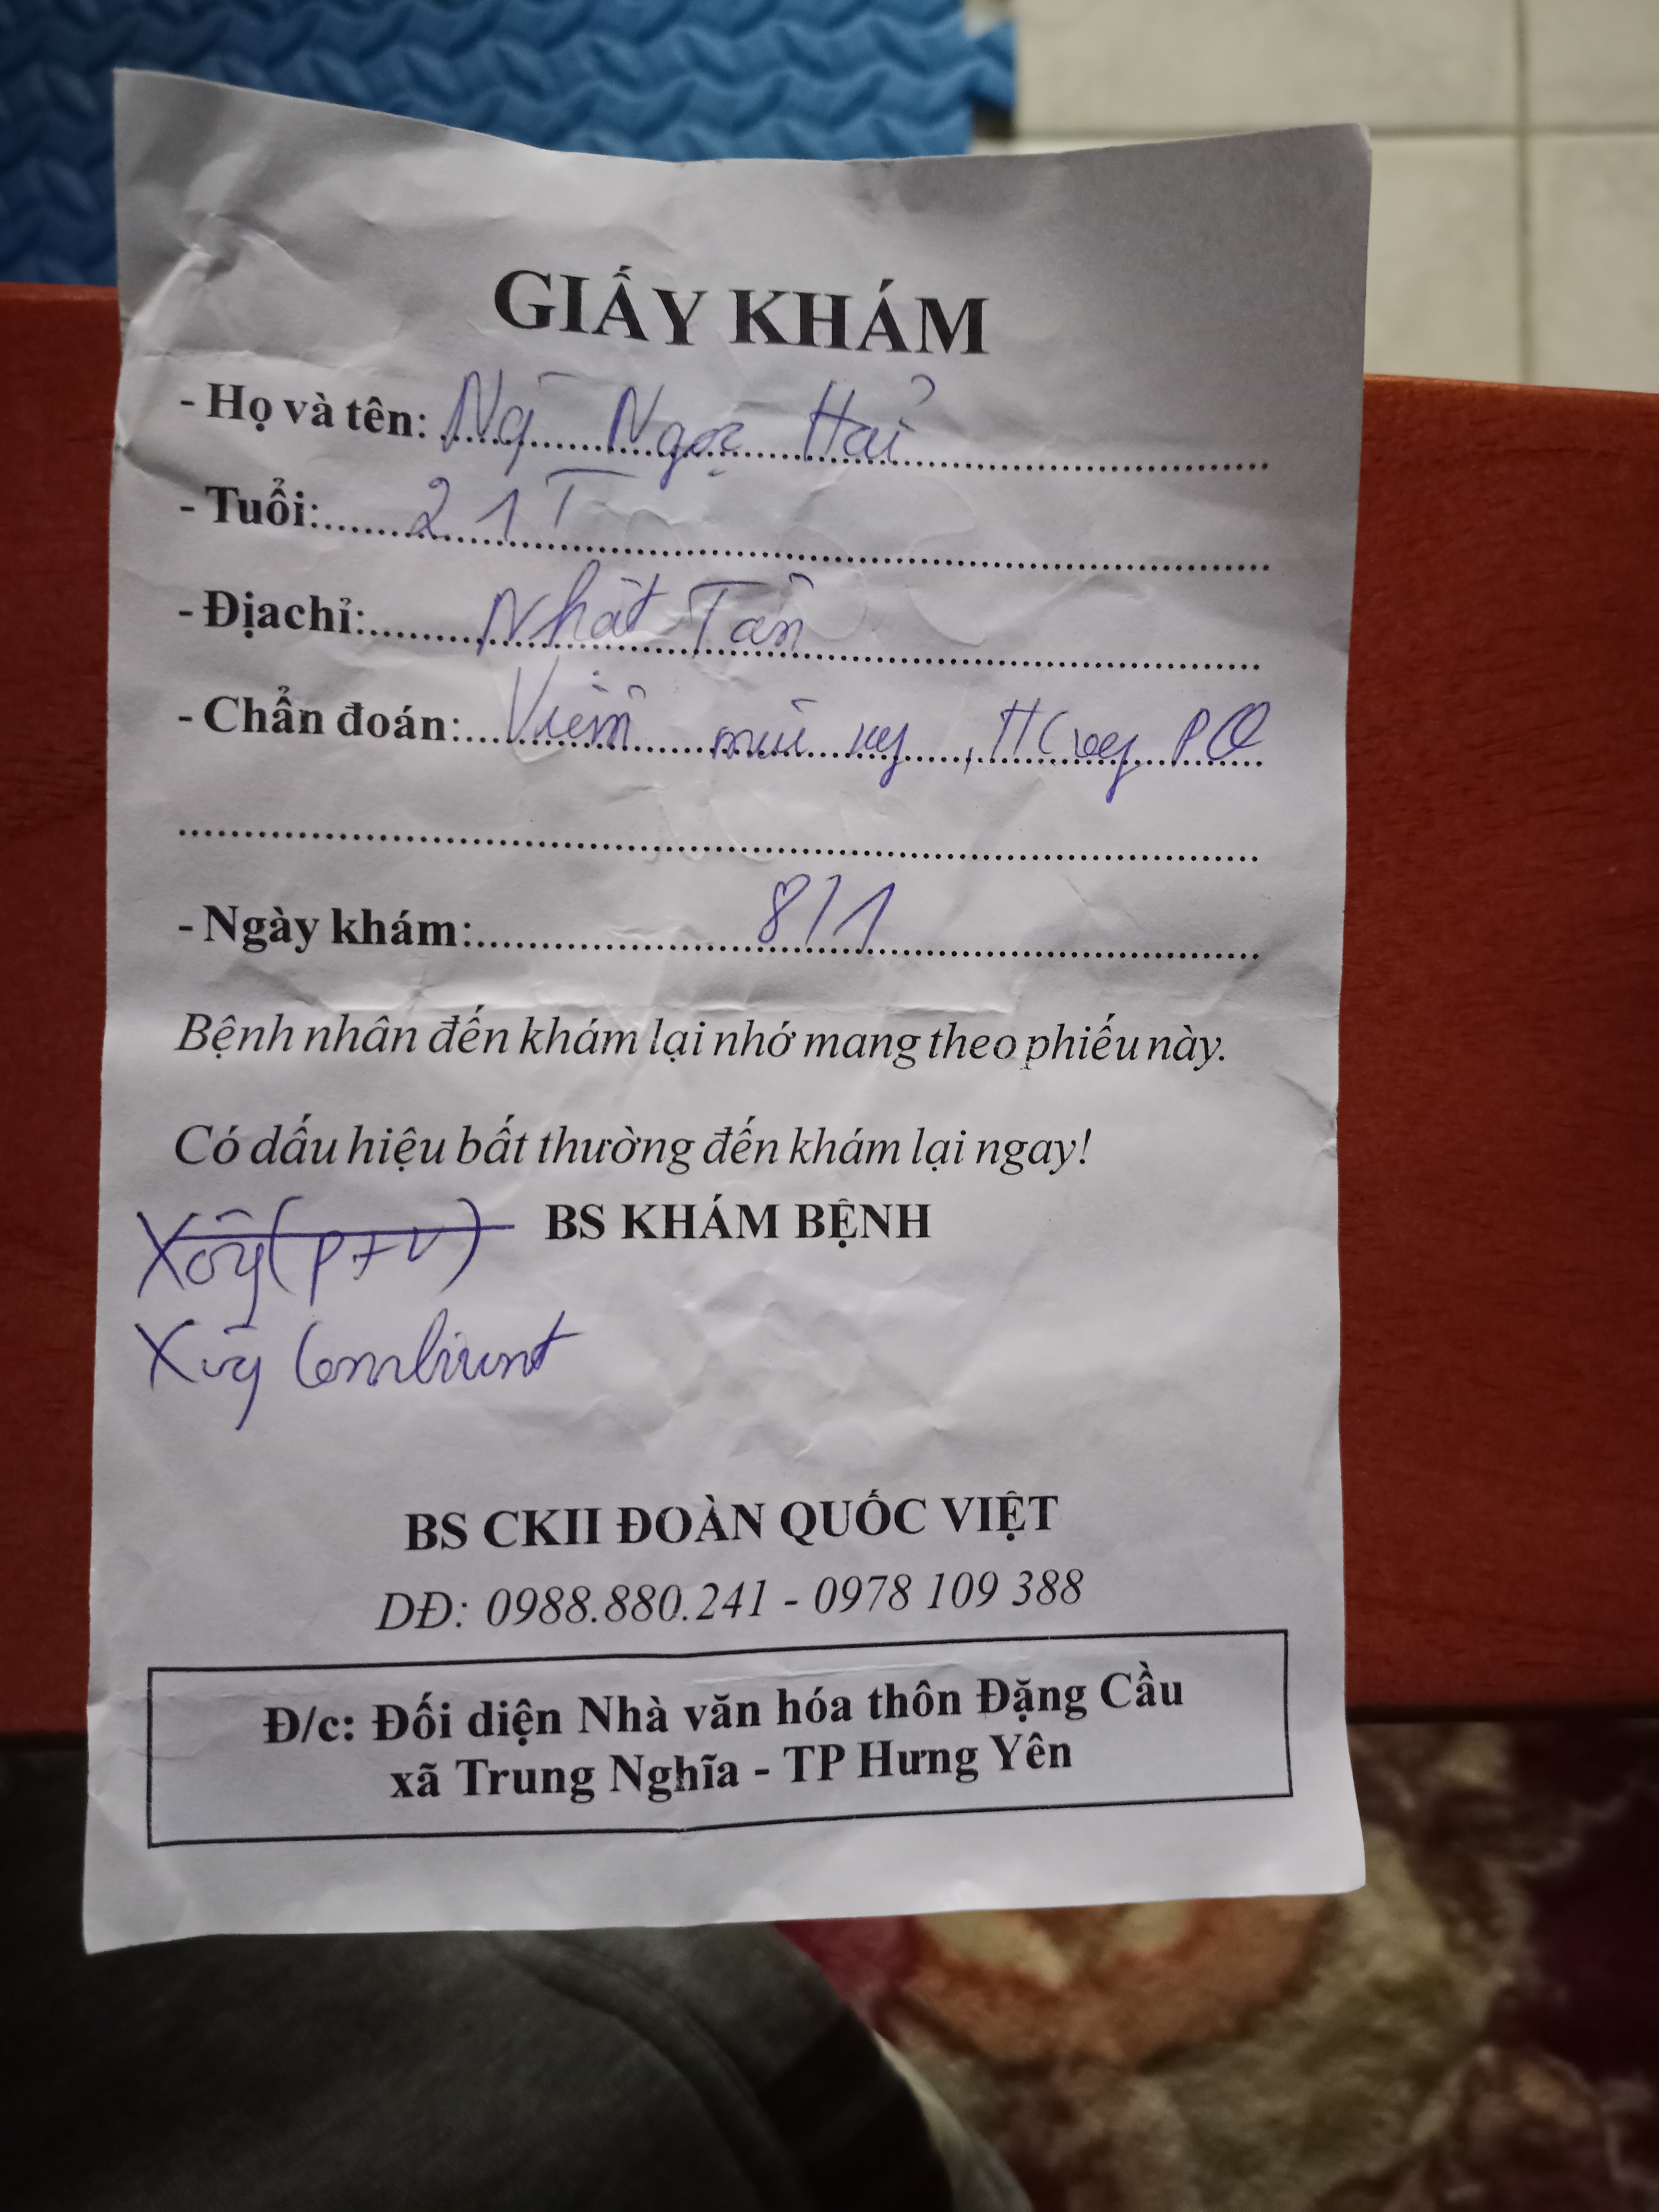 GIẤY KHÁM
- Họ và tên: Ngọc Hải
- Tuổi: 21T
- Địachỉ: Nhật Tân
- Chẩn đoán: Viêm mũi PQ
- Ngày khám: 8/1
Bệnh nhân đến khám lại nhớ mang theo phiếu này.
Có dấu hiệu bất thường đến khám lại ngay!
BS KHÁM BỆNH
BS CKII ĐOÀN QUỐC VIỆT
DĐ: 0988.880.241 - 0978 109 388
Đ/c: Đối diện Nhà văn hóa thôn Đặng Cầu
xã Trung Nghĩa - TP Hưng Yên